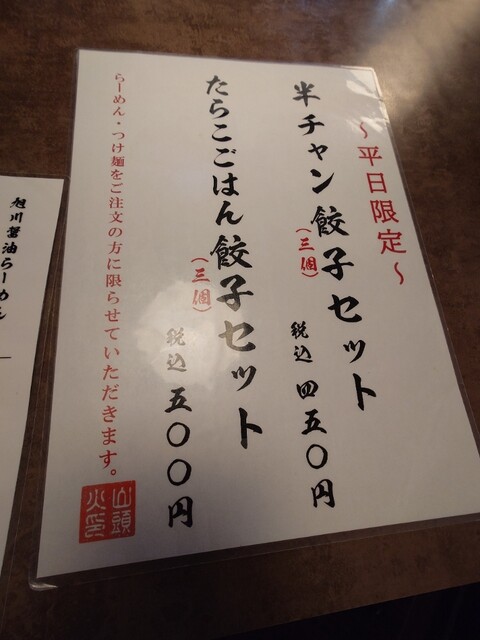 ～平日限定～
半チャン餃子セット
（三個）
税込 四五〇円
たらこごはん餃子セット
（三個）
税込 五〇〇円
らーめん・つけ麺をご注文の方に限らせていただきます。
山頭
火印
旭川醤油らーめん